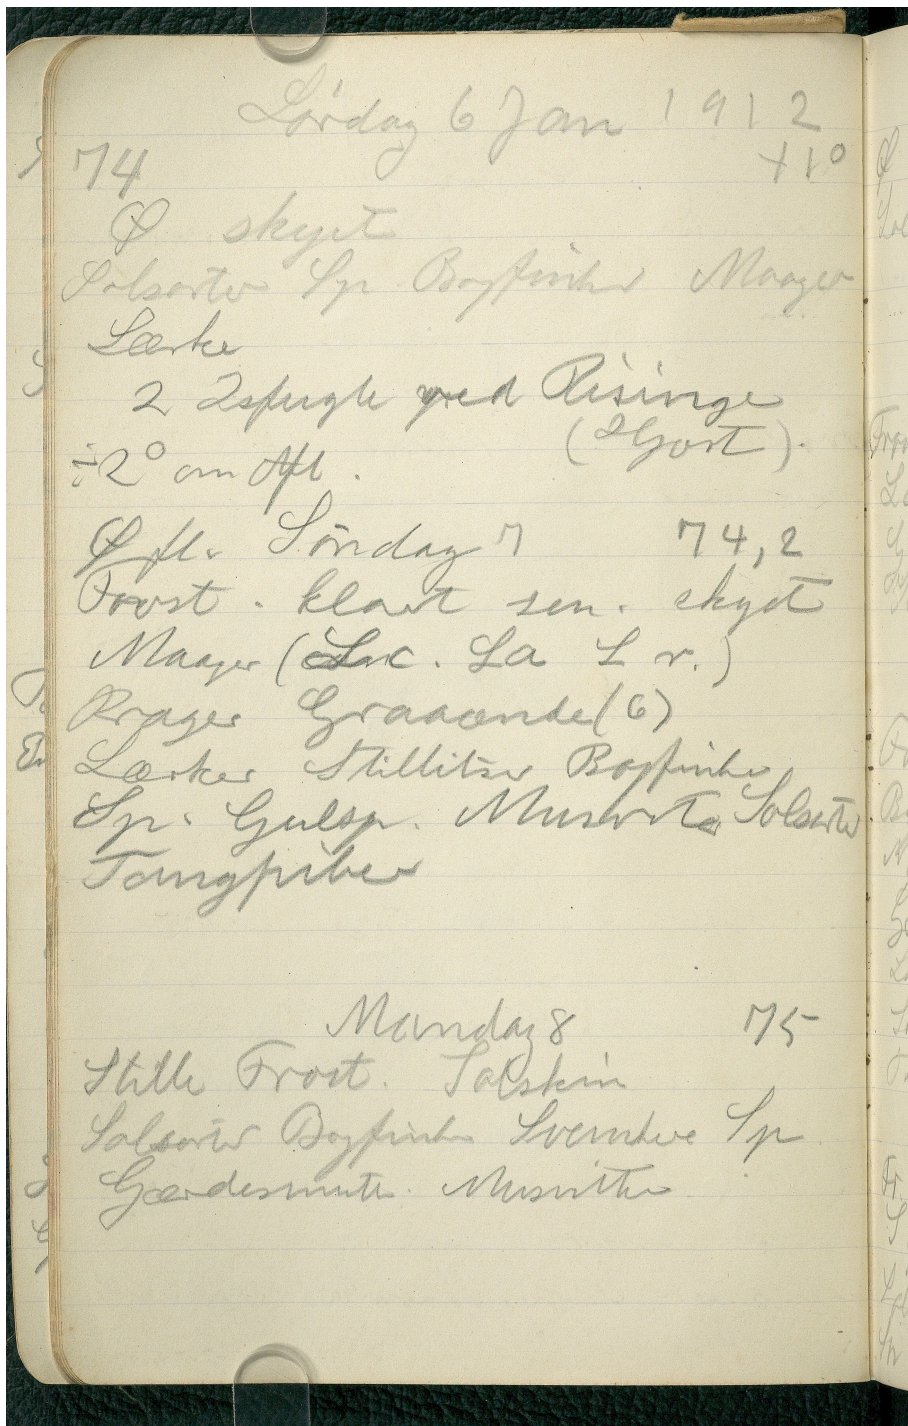 Lørdag 6 Jan 1912
74 +1°
Ø skyet
Solsorter Sp Bogfinker Maager
Lærke
2 Isfugle ved Risinge
÷2° om Aft. (Hjort).
Ø fl. Søndag 7 74,2
Frost. klart sen. skyet
Maager (L c. La L r.)
Krager Graaænder (6)
Lærker Stillitser Bogfinke
Sp. Gulsp. Musvitte Solsorter
Tangpiber
Mandag 8 75
Stille Frost. Solskin
Solsorter Bogfinke Svenskere Sp
Gærdesmutte. Musvitter